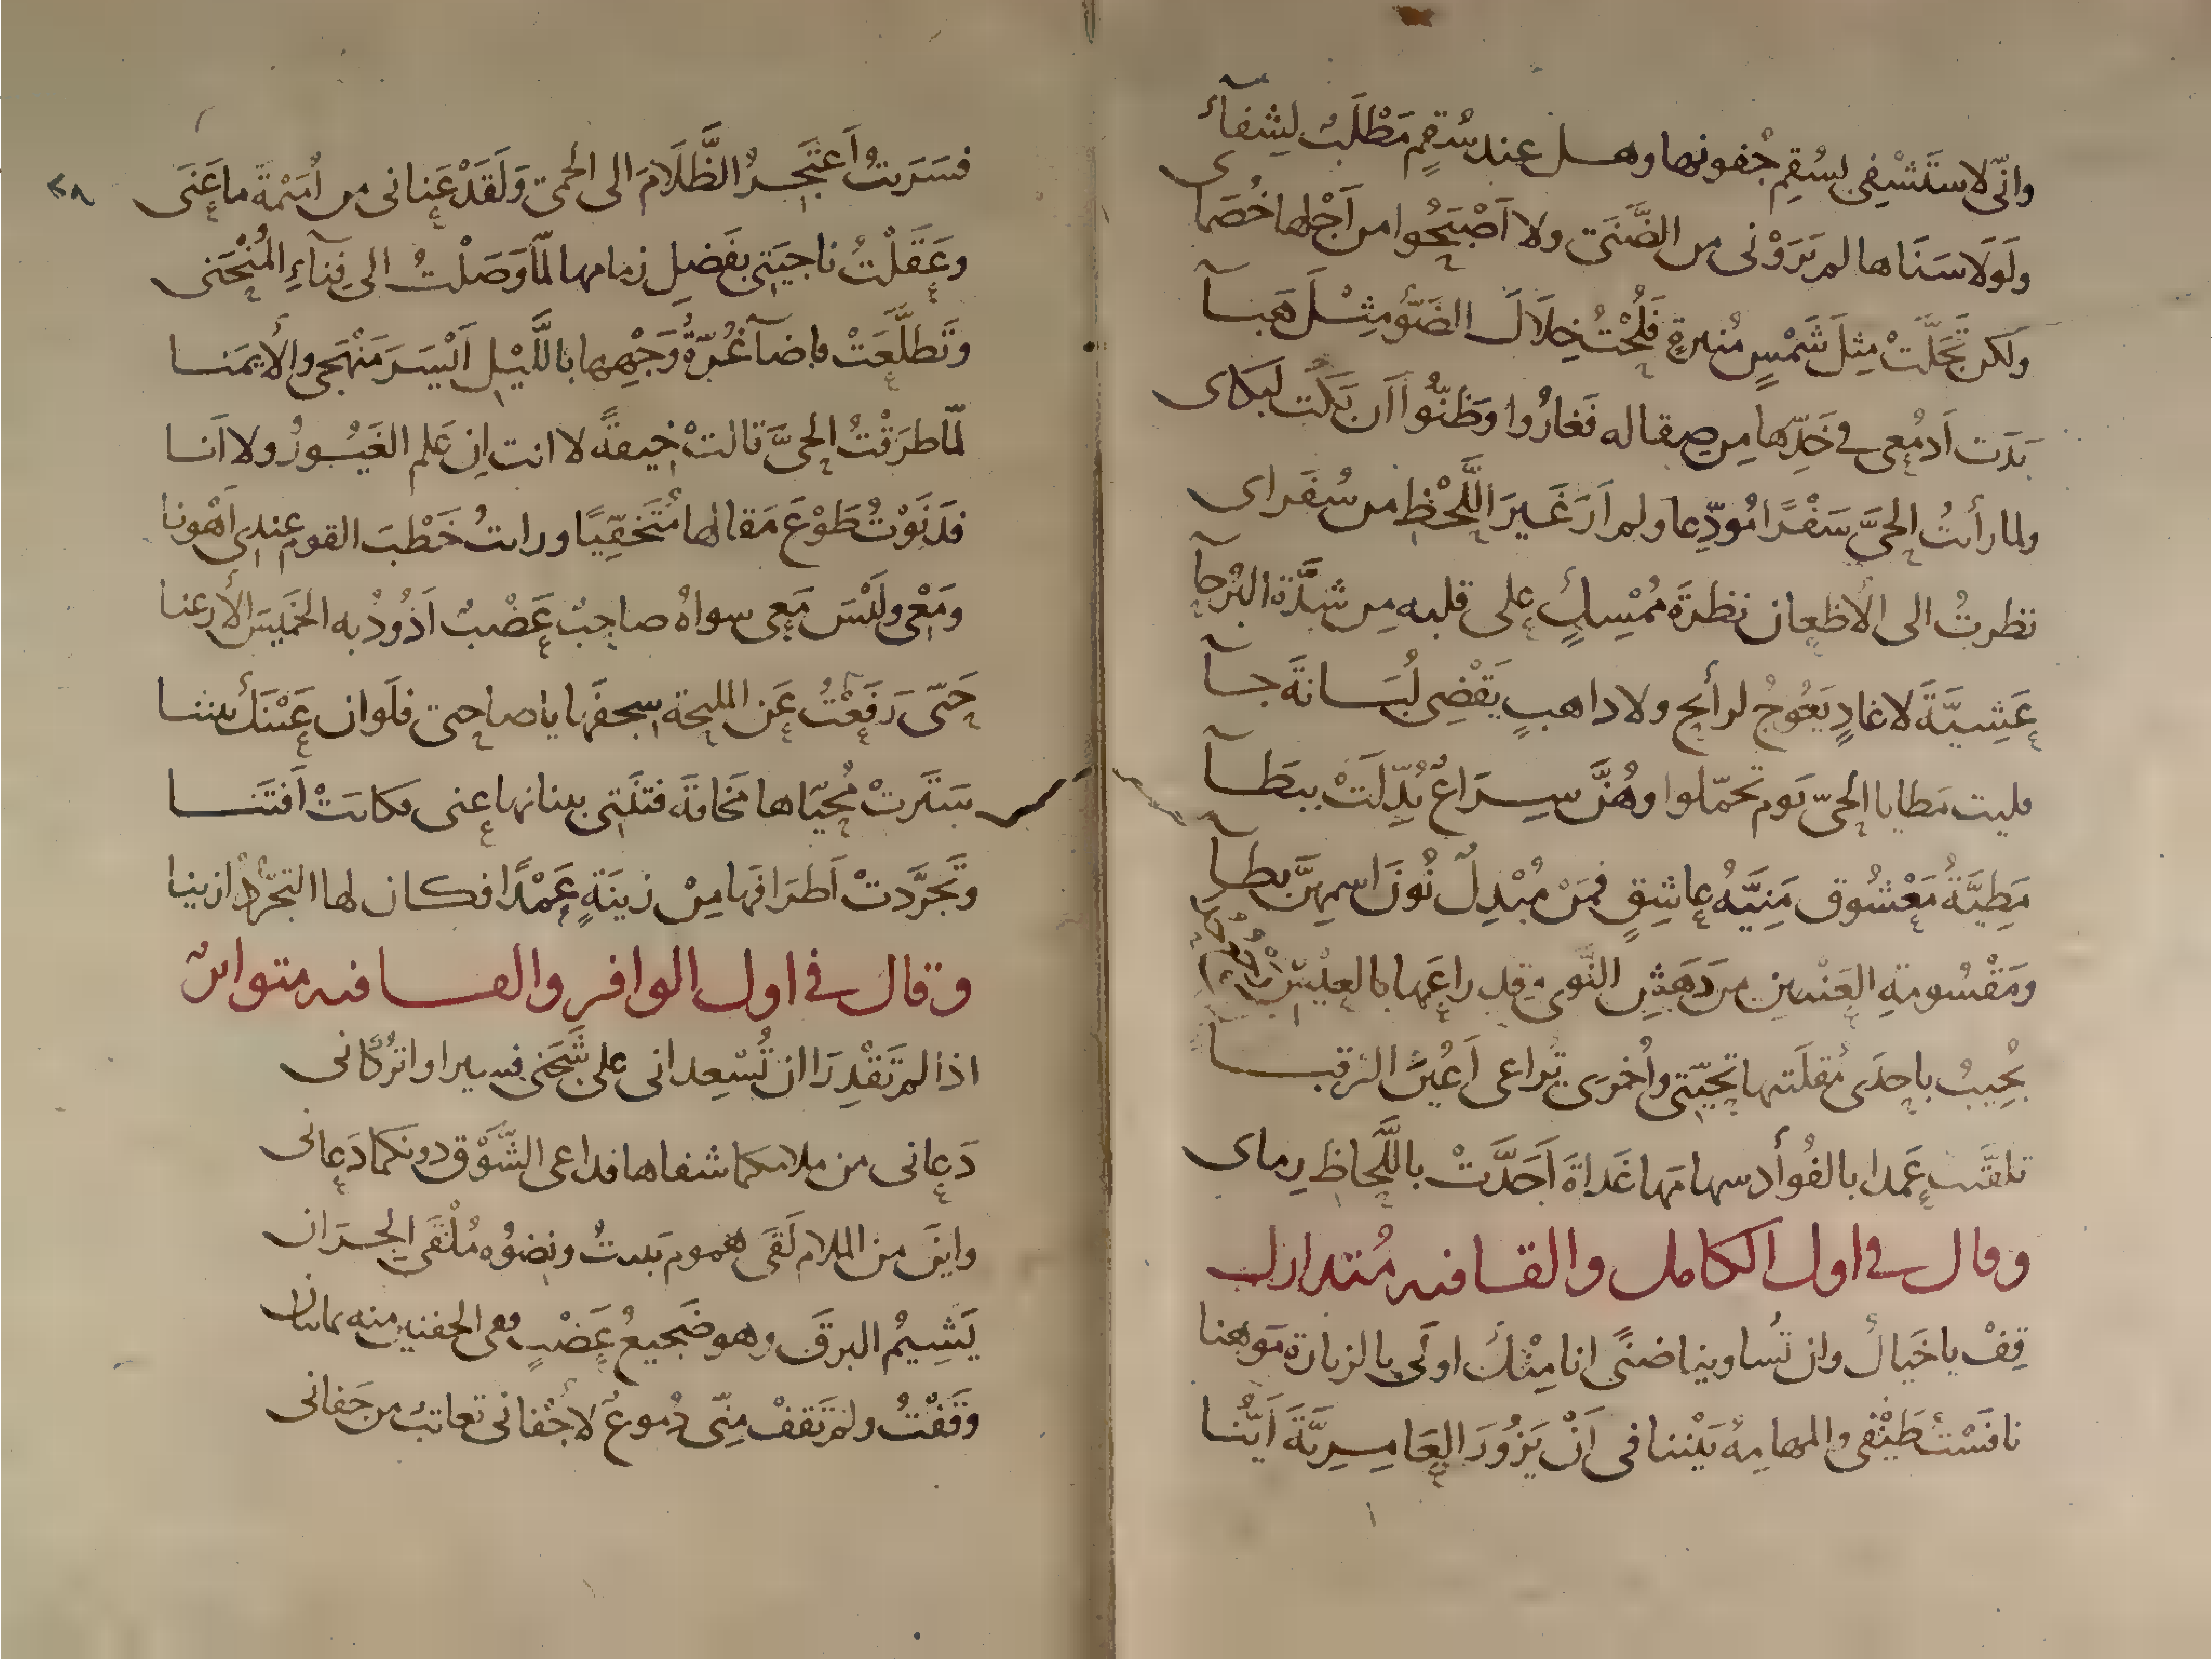 وانّى لاستَشْفِى بسُقِمِ جُفونها وهل عند سُقمٍ مَطْلَبٌ لِشفآئى
ولَولَا سَنَاها لم يَرَوْنى من الضَّنَى ولا اَصْبَحُوا من اَجْلها خُصَمآ
ولكن تَجَلَّتْ مِثلَ شَمْسٍ مُنيرةٍ فَلُحْتُ خِلَالَ الضَوْءِ مِثْلَ هَبآ
بَدَت اَدمُعى فى خَدِّها مِن صِقاله فَغارُوا وظَنّوُا اَن بَكَت لبكاى
ولما رأيتُ الحىَّ سَفْرًا مُودّعا ولم اَرَ غَيرَ اللَّحْظِ من سُفَراى
نظرتُ الى الاَظعان نظرَةَ مُمْسِكٍ على قلبه مِن شدَّة البُرَحآ
عَشِيَّةَ لا غادٍ يَعُوجُ لرائحٍ ولا ذاهبٍ يَقْضِى لُبَانَةَ جآ
فليت مَطايا الحىّ يَوم تحمّلوا وهُنَّ سِرَاعٌ بُدِّلَتْ ببطآ
مَطِيَّةُ مَعْشُوقٍ مَنِيَّةُ عاشِقٍ فَمَنْ مُبْدِلٌ نُونَ اسمِهنَّ بطآ
ومَقْسُومةِ العَيْنين من دَهَشِ النَّوى وقد راعَها بالعيسِ
تُجِيبُ باحدَى مُقلَتَيها تحيّتى واُخرى تُراعى اَعيُنَ الرقبآ
تلقّت عَمدا بالفُوأد سهامَها غَداةَ اَجَدَّتْ باللَّحاظِ رِماى
وقال فى اول الكامل والقافيه مُتدارك
قِفْ يا خَيالُ وان تَساوينا ضنًى انا مِنْكَ اولَى بالزيارة مَوهنا
نافَسْتُ طَيْفى والمهامِهُ بَيْننا فى اَنْ يَزُورَ العَامِرِيَّةَ اَيُّنا
٢٨
فسَرَيتُ اَعتَجِرُ الظَّلَامَ الى الحمى وَلَقَدْ عَنانى من اُمَيْمَةَ ما عَنَى
وعَقَلْتُ ناجيَتى بفَضلِ زِمامها لمّا وَصَلْتُ الى فِنآءِ المُنْحَنى
وتَطلَّعَتْ فاضآ غُرّةُ وَجْهِها باللَّيْلِ اَيْسَرَ مَنْهَجى والاَيمَنا
لمّا طرَقْتُ الحىَّ قالتْ خيفةً لا انت اِن عَلم الغَيُورُ ولا اَنا
فدَنَوْتُ طَوْعَ مَقالها مُتَخفِّيًا ورايتُ خَطْبَ القوم عندى اَهْونا
ومَعْى ولَيْسَ مَعى سواهُ صاحبٌ عَضْبٌ اَذُودُ به الخَميسَ الاَرعنا
حَتّى رَفَعْتُ عَن المليحة سِجفَها يا صاحبى فلَو ان عَيْنَكَ بيننا
سَتَرتْ مُحيّاها مَخافةَ فتنَتى ببنانها عنى فكانت اَفتَنا
وتَجرَّدتْ اَطرَافُها مِنْ زينَةٍ عَمْدًا فكان لها التجرُّدُ ازينا
وقال فى اول الوافر والقافيه متواتر
اذا لم تَقْدِرَا ان تُسْعِدانى على شَجَنى فسيرا واتركانى
دَعانى من ملامكما شفاها فداعى الشَّوْق دونكما دَعانى
واين من الملام لَقَى هموم يَبيتُ ونضوُه مُلْقَى الجرَان
يَشِيمُ البرقَ وهو ضَجيعُ عَضْبٍ ففى الجفنين منه يمانيان
وَقَفْتُ ولم تَقفْ مِنّى دُموعٌ لاَجْفانى تعاتبُ من جَفانى